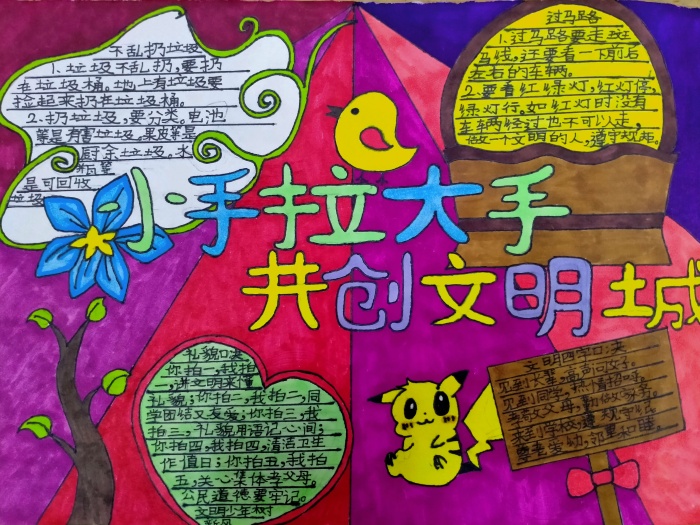 不乱扔垃圾
1.垃圾不乱扔,要扔
在垃圾桶。地上有垃圾要
捡起来扔在垃圾桶。
2.扔垃圾,要分类。电池
等是有害垃圾,果皮等是
厨余垃圾。水
瓶等
是可回收
垃圾
过马路
1.过马路要走斑
马线,还要看一下前后
左右的车辆。
2.要看红绿灯,红灯停,
绿灯行。如红灯时没有
车辆经过也不可以走,
做一个文明的人,遵守规矩。
小手拉大手
共创文明城
礼貌口决
你拍一,我拍
一,讲文明来懂
礼貌;你拍二,我拍二,同
学团结又友爱;你拍三,我
拍三,礼貌用语记心间;
你拍四,我拍四,清洁卫生
作值日;你拍五,我拍
五,关心集体孝父母。
公民道德要牢记。
文明少年树
新风
文明四字口决
见到大师,高声问好。
见到同学,热情招呼。
孝敬父母,勤做家务。
来到学校,遵规守纪。
尊老爱幼,邻里和睦。